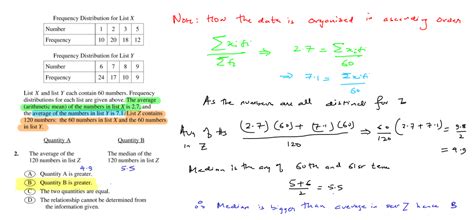 Frequency Distribution for List X
Number 1 2 3 5
Frequency 10 20 18 12
Frequency Distribution for List Y
Number 6 7 8 9
Frequency 24 17 10 9
List X and list Y each contain 60 numbers. Frequency
distributions for each list are given above. The average
(arithmetic mean) of the numbers in list X is 2.7, and
the average of the numbers in list Y is 7.1. List Z contains
120 numbers: the 60 numbers in list X and the 60 numbers
in list Y.
Quantity A Quantity B
2. The average of the The median of the
120 numbers in list Z 120 numbers in list Z
4.9 5.5
A Quantity A is greater.
B Quantity B is greater.
C The two quantities are equal.
D The relationship cannot be determined from
the information given.
Note: How the data is organised in ascending order
Σxifi / Σfi ⇒ 2.7 = Σxifi / 60
⇒ 7.1 = Σxifi / 60
As the numbers are all distinct for Z
Avg of
in Z (2.7)(60) + (7.1)(60) / 120 ⇒ 60/120 (2.7 + 7.1) = 9.8/2
= 4.9
Median is the avg of 60th and 61st term
5+6 / 2 = 5.5
∴ Median is bigger than average in sev hence B